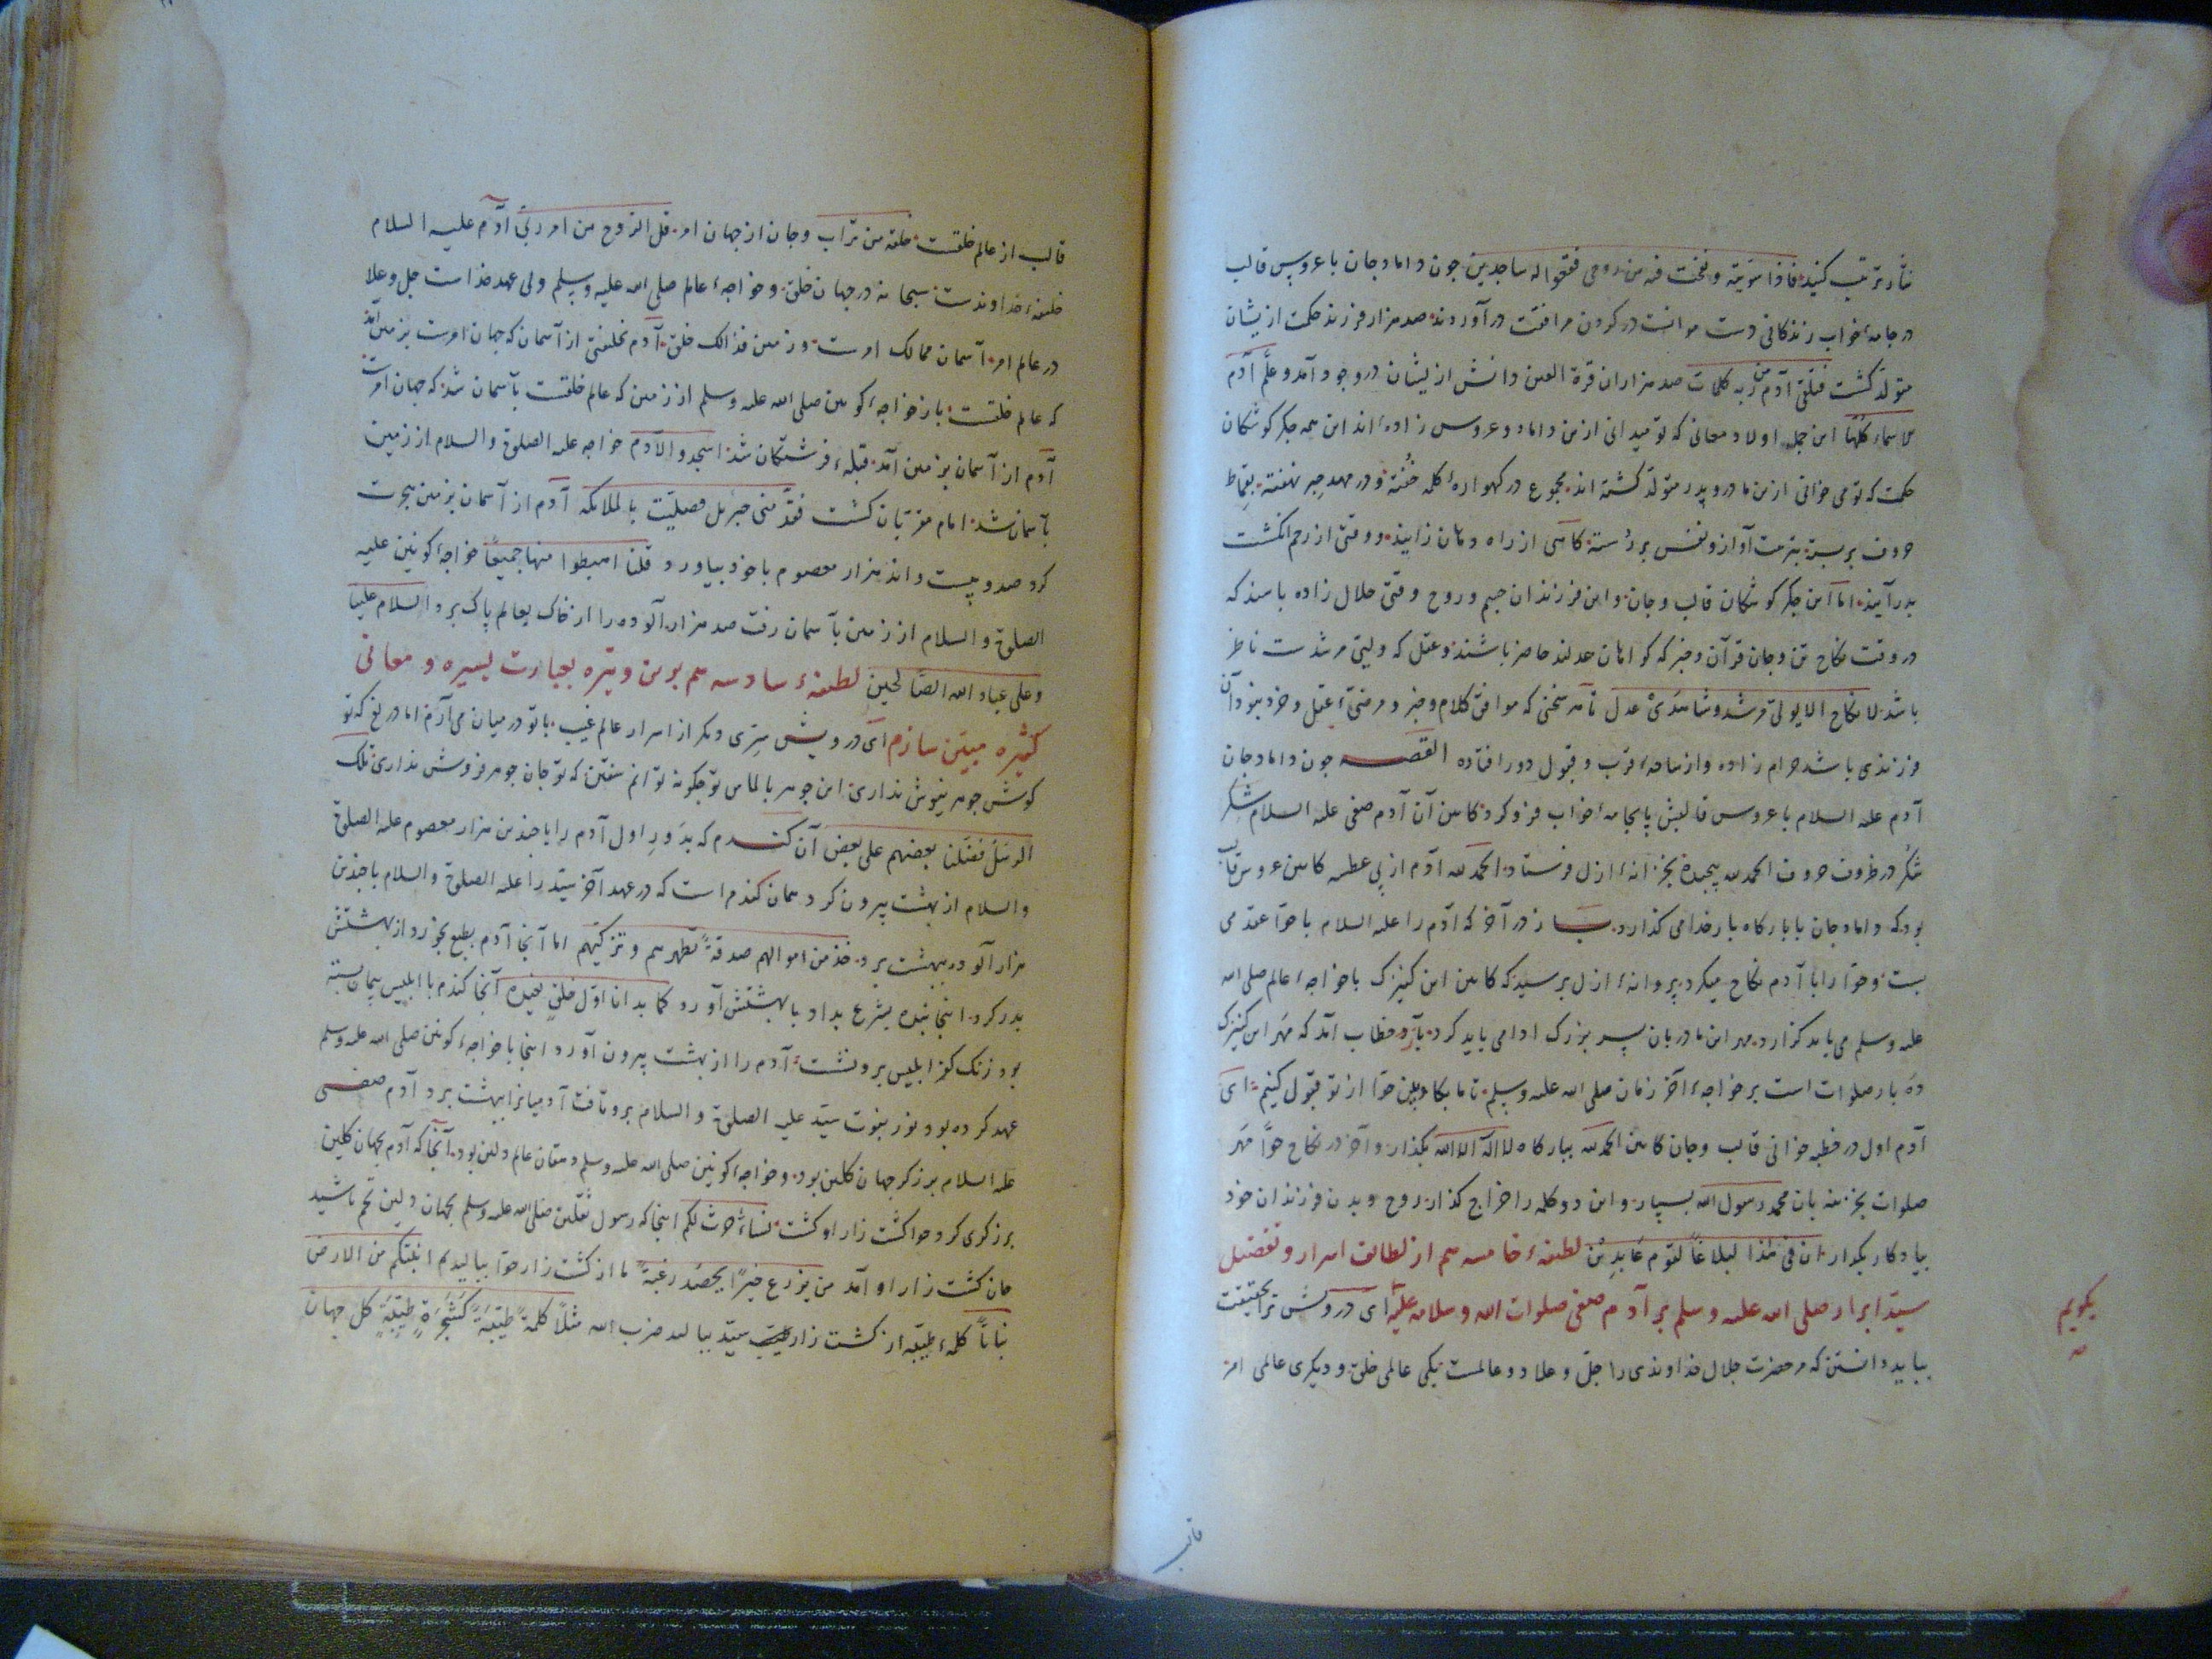 نثار ترتیب کنید فاذا سویته و نفخت فیه من روحی فقعوا له ساجدین چون داماد جان با عروس قالب
در جامهٔ خواب زندکانی دست موانست در کردن مرافقت درآوردند صد هزار فرزند حکمت ازیشان
متولد کشت فتلقی آدم من ربه کلمات صد هزاران قرة العین دانش ازیشان در وجود آمد و علّم آدم
الاسماء کلها این جمله اولاد معانی که تو میدانی ازین داماد و عروس زاده اند این همه جکر کوشکان
حکمت که تو می خوانی ازین مادر و پدر متولد کشته اند مجموع در کهوارهٔ کلمه خفته و در مهد نهفته بقماط
حروف بر بسته آواز و نفس بر رسته کاهی از راه دهان زایند و وقتی از رحم انکشت
بدر آیند اما این جکر کوشکان قالب و جان و این فرزندان جسم و روح وقتی حلال زاده باشند که
در وقت نکاح تن و جان قرآن و خبر که کواهان عدلند حاضر باشند و عقل که ولیّ مرشدست ناظر
باشد لا نکاح الا بولیّ مرشد و شاهدیْ عدل تا هر سخنی که موافق کلام و خبر و مرضیّ عقل و خرد نبود آن
فرزندی باشد حرام زاده و از ساحهٔ قرب و قبول دور افتاده القصه چون داماد جان
آدم علیه السلام با عروس قالبش پا بجامهٔ خواب فرو کرد کابین آن آدم صفی علیه السلام شکر
شکر در ظروف حروف الحمد لله پیچیده بخزانهٔ ازل فرستاد الحمد لله آدم از پی عطسه کابین عروس قالب
بود که داماد جان با بارکاه بار خدا می کذارد باز در آخر که آدم را علیه السلام با حوا عقد می
بست و حوا را با آدم نکاح میکرد پروانهٔ ازل برسید که کابین این کنیزک با خواجهٔ عالم صلی الله
علیه و سلم می باید کزارد مهر این مادر بان پسر بزرک ادا می باید کرد خطاب آمد که مهر این کنیزک
ده بار صلوات است بر خواجهٔ آخر زمان صلی الله علیه وسلم تا ما بکابین حوا از تو قبول کنیم ای
آدم اول در خطبه خوانی قالب و جان کابین الحمد لله ببارکاه لا اله الا الله بکذار و آخر در نکاح حوا مهر
صلوات بخزینه بان محمد رسول الله بسپار و این دو کلمه را خراج کذار روح و بدن فرزندان خود
بیادکار بکدار ان فی هذا لبلاغا لقوم عابدین لطیفهٔ خامسه هم از لطائف اسرار و تفضیل
سید ابرار صلی الله علیه وسلم بر آدم صفی صلوات الله و سلامه علیه ای درویش ترا بحقیقت
بباید دانستن که مر حضرت جلال خداوندی را جلّ و علا دو عالمست یکی عالمی خلق و دیکری عالمی امر
بکویم
قالب
قالب از عالم خلقست خلقه من تراب و جان از جهان امر قل الروح من امر ربی آدم علیه السلام
خلیفهٔ خداوندست سبحانه در جهان خلق و خواجهٔ عالم صلی الله علیه وسلم ولی عهد خداست جل و علا
در عالم امر آسمان ممالک امرست و زمین فذالک خلق آدم بخلیفتی از آسمان که جهان امرست بزمین آمد
که عالم خلقست باز خواجهٔ کونین صلی الله علیه وسلم از زمین که عالم خلقست بآسمان شد که جهان امرست
آدم از آسمان بزمین آمد قبلهٔ فرشتکان شد اسجدوا لآدم خواجه علیه الصلوة والسلام از زمین
بآسمان شد امام مقربان کشت فقدّمنی جبریل فصلیت بالملائکه آدم از آسمان بزمین هجرت
کرد صد و بیست و اند هزار معصوم با خود بیاورد و قلنا اهبطوا منها جمیعًا خواجهٔ کونین علیه
الصلوة والسلام از زمین بآسمان رفت صد هزار آلوده را از خاک بعالم پاک برد السلام علینا
و علی عباد الله الصالحین لطیفهٔ سادسه هم برین وتیره بعبارت یسیره و معانی
کثیره مبیّن سازم ای درویش سِرّی دیکر از اسرار عالم غیب با تو در میان می آرم اما دریغ که تو
کوش جوهر نیوش نداری این جوهر بالماس تو چکونه توانم سفتن که تو جان جوهر فروش نداری تلک
الرسل فضلنا بعضهم علی بعض آن کندم که بدور اول آدم را با چندین هزار معصوم علیه الصلوة
والسلام از بهشت بیرون کرد همان کندم است که در عهد آخر سید را علیه الصلوة والسلام با چندین
هزار آلوده ببهشت برد خذ من اموالهم صدقةً تطهرهم و تزکیهم اما آنجا آدم بطبع بخورد از بهشتش
بدر کرد اینجا بنده بشرع بداد با بهشتش آورد کما بدانا اول خلق نعیده آنجا کندم با ابلیس پیمان بسته
بود زنک کفر ابلیس برو نشست آدم را از بهشت بیرون آورد اینجا با خواجهٔ کونین صلی الله علیه وسلم
عهد کرده بود نور نبوت سید علیه الصلوة والسلام برو تافت آدمیانرا ببهشت برد آدم صفی
علیه السلام برزکر جهان کلین بود و خواجهٔ کونین صلی الله علیه وسلم دهقان عالم دلین بود آنجا که آدم بجهان کلین
برزکری کرد حوا کشت زار او کشت نساؤکم حرث لکم اینجا که رسول ثقلین صلی الله علیه وسلم بجهان دلین تخم پاشید
جان کشت زار او آمد من یزرع خیرًا یحصد رغبةً ما از کشت زار حوا ببالیدیم انبتکم من الارض
نباتًا کلمهٔ طیبه از کشت زار سید ببالید ضرب الله مثلًا کلمةً طیّبةً کشجرةٍ طیّبةٍ کل جهان